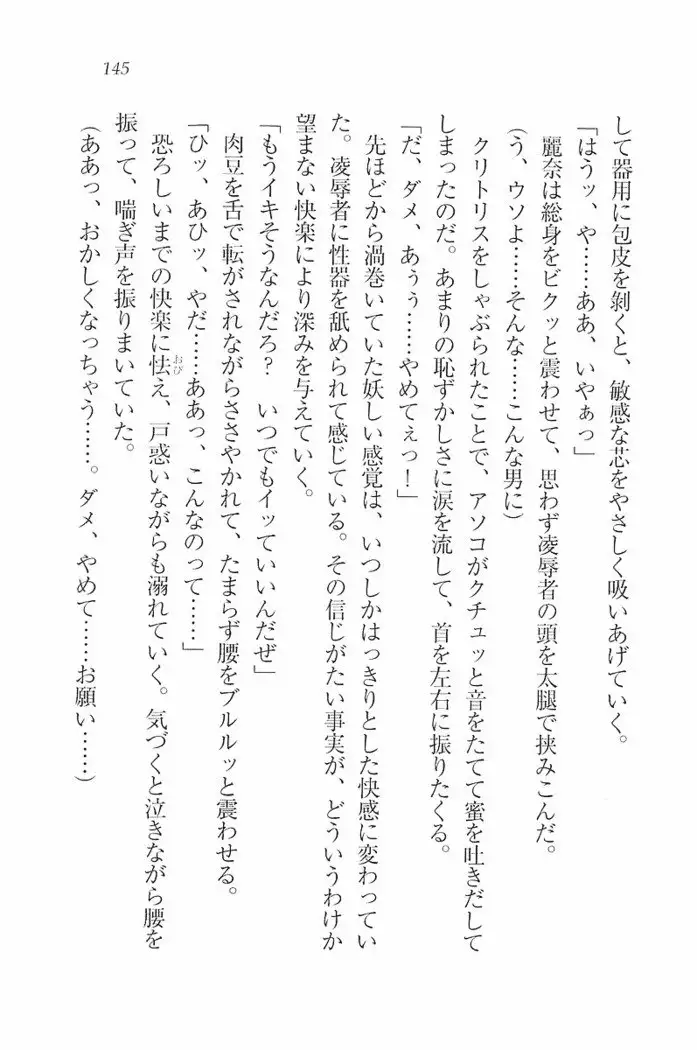 145
して器用に包皮を剝くと、敏感な芯をやさしく吸いあげていく。
「はうッ、や……ああ、いやぁっ」
麗奈は総身をビクッと震わせて、思わず凌辱者の頭を太腿で挟みこんだ。
(う、ウソよ……そんな……こんな男に)
クリトリスをしゃぶられたことで、アソコがクチュッと音をたてて蜜を吐きだして
しまったのだ。あまりの恥ずかしさに涙を流して、首を左右に振りたくる。
「だ、ダメ、あぅぅ……やめてぇっ！」
先ほどから渦巻いていた妖しい感覚は、いつしかはっきりとした快感に変わってい
た。凌辱者に性器を舐められて感じている。その信じがたい事実が、どういうわけか
望まない快楽により深みを与えていく。
「もうイキそうなんだろ？　いつでもイッていいんだぜ」
肉豆を舌で転がされながらささやかれて、たまらず腰をブルルッと震わせる。
「ひッ、あひッ、やだ……ああっ、こんなのって……」
恐ろしいまでの快楽に怯おびえ、戸惑いながらも溺れていく。気づくと泣きながら腰を
振って、喘ぎ声を振りまいていた。
(ああっ、おかしくなっちゃう……。ダメ、やめて……お願い……)